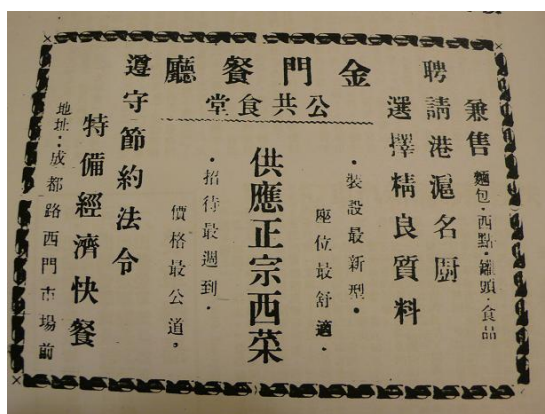 金門餐廳
公共食堂
兼售麵包·西點·罐頭·食品
聘請港滬名廚
選擇精良質料
·裝設最新型·
座位最舒適·
供應正宗西菜
·招待最週到·
價格最公道。
遵守節約法令
特備經濟快餐
地址：成都路西門市場前